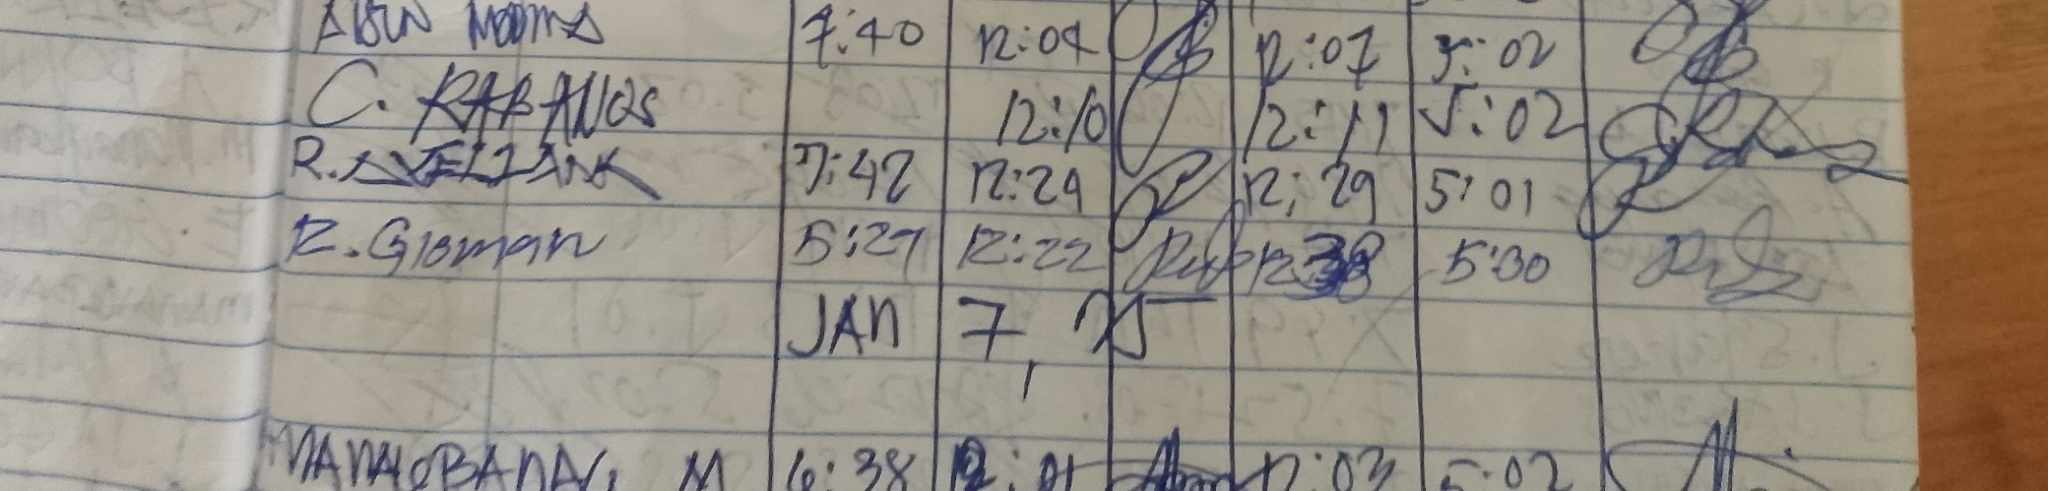 7:40 12:04 12:07 5:02
C. RABANOS 12:10 12:11 5:02
R. AVELLANA 7:42 12:24 12:29 5:01
R. Gloman 5:27 12:22 12 38 5:30
JAN 7, 25
MANALOBANAG, M 6:38 12:01 12:03 5:02